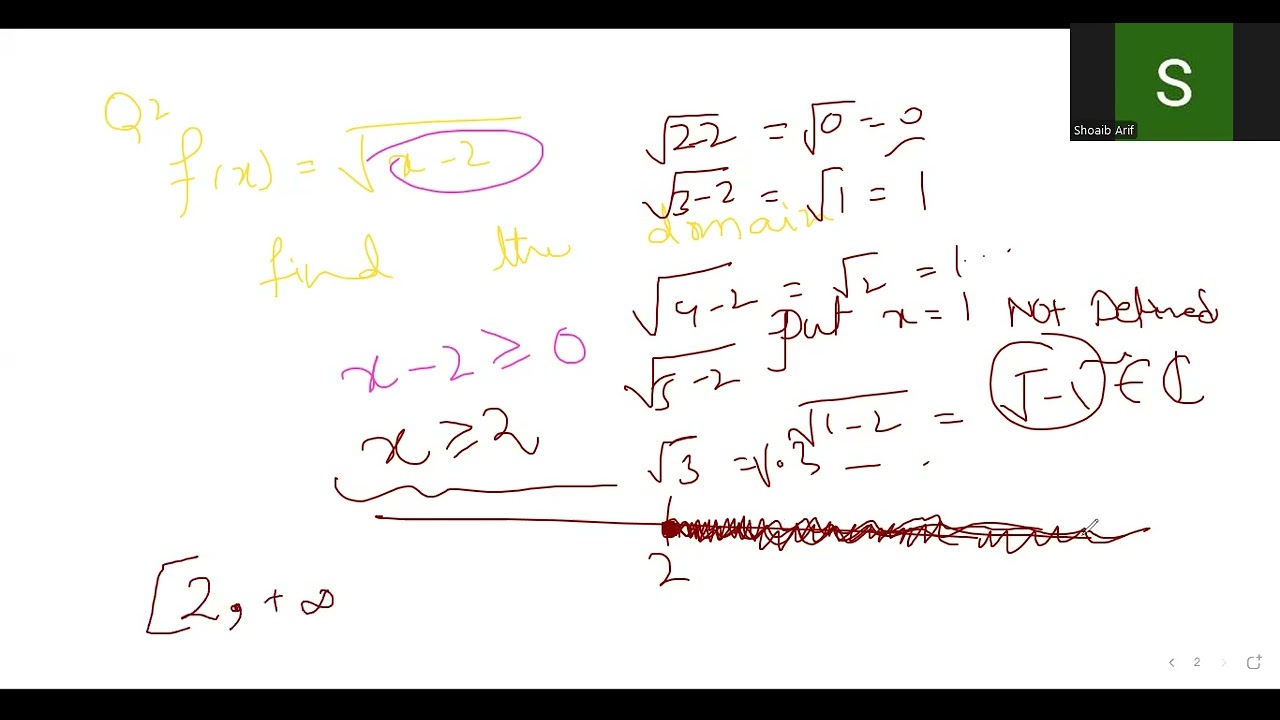 Q2
f(x) = √x-2
find the domain
x-2 ≥ 0
x ≥ 2
[2, +∞
√2-2 = √0 = 0
√3-2 = √1 = 1
√4-2 = √2 = 1...
put x = 1 Not Defined
√5-2
√1-2 = √-1 ∈ ℂ
√3 = 1.3 — .
2
S
Shoaib Arif
2